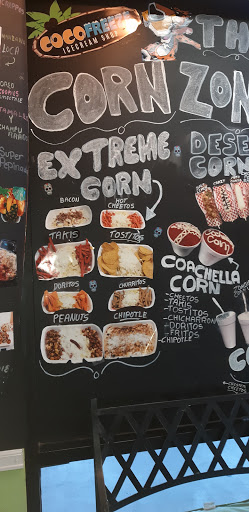 COCO FRESH
ICECREAM SHOP
THE
CORN ZON
EXTREME
CORN
DESE
CORN
BACON
HOT
CHEETOS
TAKIS
TOSTITOS
DORITOS
CHURRITOS
PEANUTS
CHIPOTLE
Corn
COACHELLA
CORN
- CHEETOS
- TAKIS
- TOSTITOS
- CHICHARRON
- DORITOS
- FRITOS
- CHIPOTLE
LOCA
TAMALE
Super